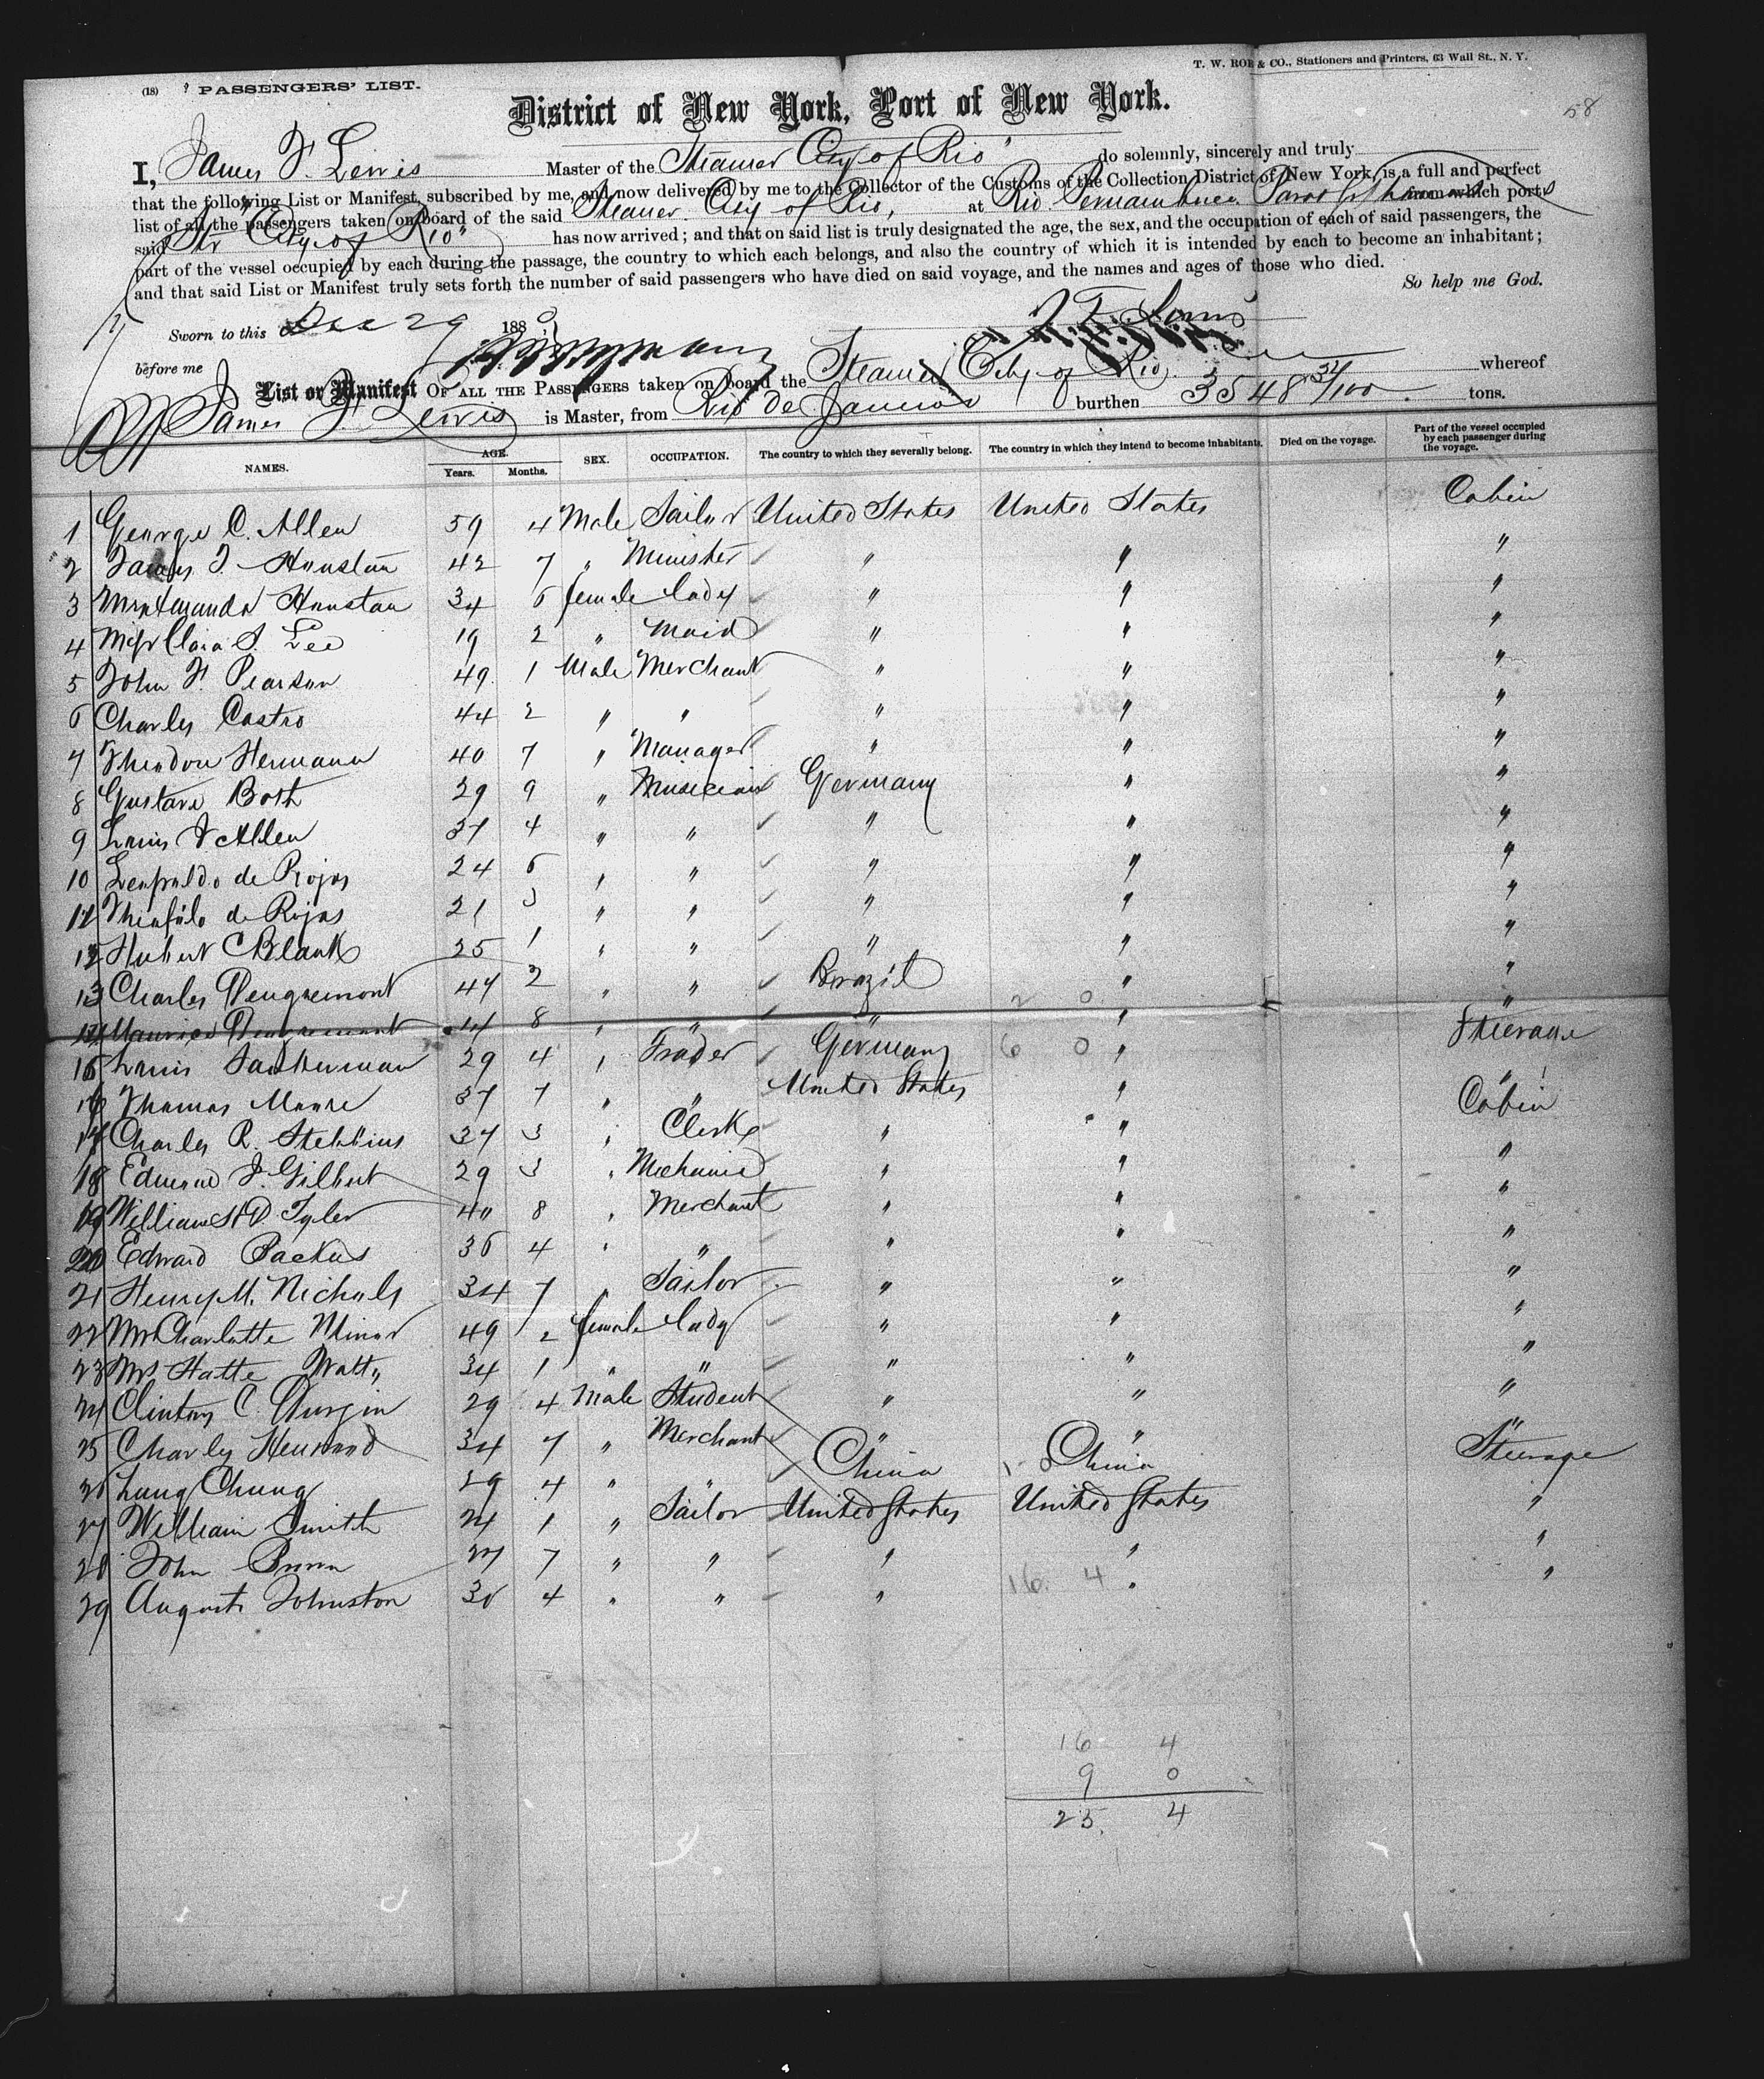 T. W. ROE & CO., Stationers and Printers, 63 Wall St., N. Y.
(18) PASSENGERS' LIST.
District of New York, Port of New York.
58
I, James F. Lewis Master of the Steamer City of Rio do solemnly, sincerely and truly
that the following List or Manifest, subscribed by me, and now delivered by me to the Collector of the Customs of the Collection District of New York, is a full and perfect
list of all the passengers taken on board of the said Steamer City of Rio, at Rio Pernambuco Para St Thomas from which port
said Str "City of Rio" has now arrived; and that on said list is truly designated the age, the sex, and the occupation of each of said passengers, the
part of the vessel occupied by each during the passage, the country to which each belongs, and also the country of which it is intended by each to become an inhabitant;
and that said List or Manifest truly sets forth the number of said passengers who have died on said voyage, and the names and ages of those who died.
So help me God.
Sworn to this Dec 29 188
before me
List or Manifest OF ALL THE PASSENGERS taken on board the Steamer City of Rio whereof
James F. Lewis is Master, from Rio de Janeiro burthen 3548 34/100 tons.
NAMES. AGE. Years. Months. SEX. OCCUPATION. The country to which they severally belong. The country in which they intend to become inhabitants. Died on the voyage. Part of the vessel occupied by each passenger during the voyage.
1 George C. Allen 59 4 Male Sailor United States United States Cabin
2 James T. Houston 42 7 " Minister " " "
3 Mrs Amanda Houston 34 6 female Lady " " "
4 Miss Clara S. Lee 19 2 " Maid " " "
5 John F. Pearson 49 1 Male Merchant " " "
6 Charles Castro 44 2 " " " " "
7 Theodore Hermann 40 7 " Manager " " "
8 Gustave Both 29 9 " Musician Germany " "
9 Louis J Allen 37 4 " " " " "
10 Leopoldo de Rojas 24 6 " " " " "
11 Theofilo de Rojas 21 3 " " " " "
12 Hubert C Blank 25 1 " " " " "
13 Charles Dengremont 44 2 " " Brazil " "
14 Maurice Dengremont 14 8 " " " " "
15 Louis 29 4 " Trader Germany " Steerage
16 Thomas Moore 37 7 " " United States " "
17 Charles R. Stebbins 37 3 " Clerk " " Cabin
18 Edmund J. Gilbert 29 3 " Mechanic " " "
19 William H D. Tyler 40 8 " Merchant " " "
20 Edward Backus 36 4 " " " " "
21 Henry M. Nichols 34 7 " Sailor " " "
22 Mrs Charlotte Minor 49 2 female Lady " " "
23 Mrs Hatte Watts 34 1 " " " " "
24 Clinton C. Durgin 29 4 Male Student " " "
25 Charles 34 7 " Merchant " " "
26 Lung Chung 29 4 " " China China Steerage
27 William Smith 24 1 " Sailor United States United States "
28 John 27 7 " " " " "
29 August Johnston 30 4 " " " " "
2 0
6 0
16 4
16 4
9 0
25 4